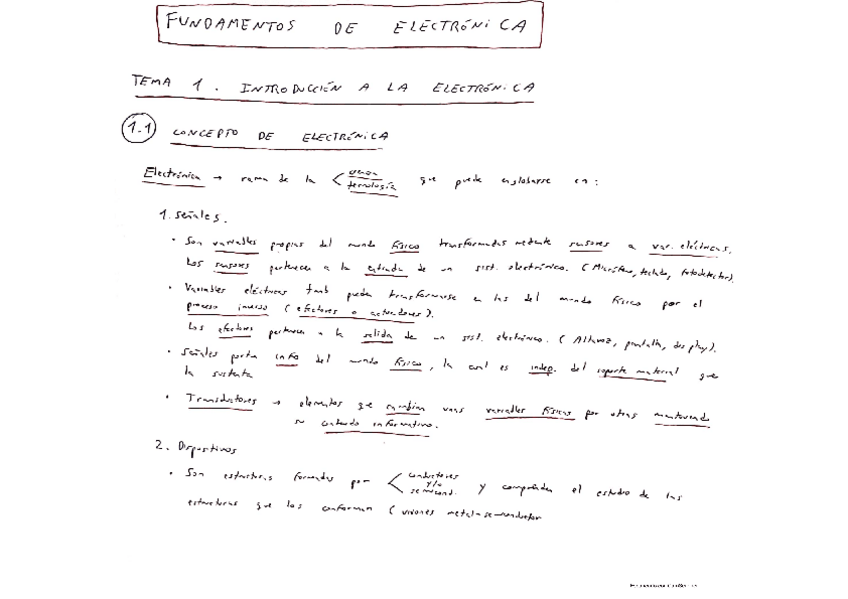 FUNDAMENTOS DE ELECTRÓNICA
TEMA 1. INTRODUCCIÓN A LA ELECTRÓNICA
1.1 CONCEPTO DE ELECTRÓNICA
Electrónica → rama de la < tecnología que puede englobarse en:
1. Señales.
• Son variables propias del mundo físico transformadas mediante sensores a var. eléctricas.
Los sensores pertenecen a la entrada de un sist. electrónico. (Micrófono, teclado, fotodetector).
• Variables eléctricas tamb pueden transformarse en las del mundo físico por el
proceso inverso (efectores o actuadores).
Los efectores pertenecen a la salida de un sist. electrónico. (Altavoz, pantalla, display).
• Señales portan info del mundo físico, la cual es indep. del soporte material que
la sustenta
• Transductores → elementos que cambian unas variables físicas por otras manteniendo
su contenido informativo.
2. Dispositivos
• Son estructuras formadas por < conductores y/o semicond. y comprenden el estudio de las
estructuras que los conforman (uniones metal-semiconductor